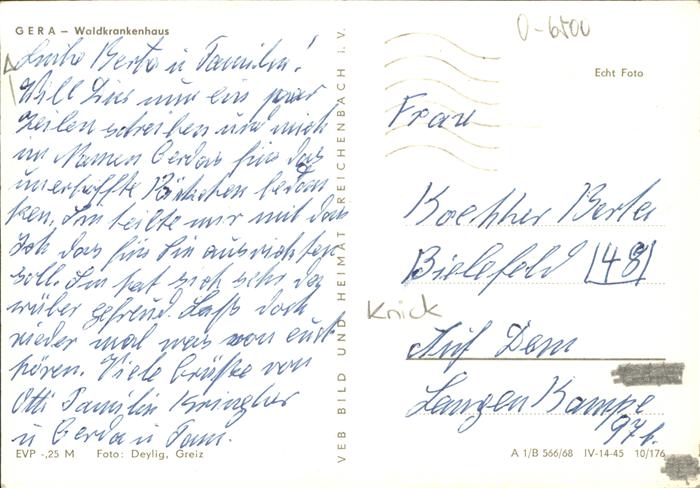 GERA – Waldkrankenhaus
Liebe Berta u Familie!
Will Dir nur ein paar
Zeilen schreiben und mich
im Namen Gerdas für das
unerhoffte Päckchen bedan
ken, Sie teilte mir mit das
Ich das für Sie ausrichten
soll. Sie hat sich sehr da
rüber gefreud. Laß doch
wieder mal was von euch
hören. Viele Grüße von
Otti Familie
u Gerda u Fam.
EVP -,25 M Foto: Deylig, Greiz
VEB BILD UND HEIMAT REICHENBACH i. V.
0-6500
Echt Foto
Frau
Berta
Bielefeld (48)
Knick
Auf Dem
Langen Kampe
97b.
A 1/B 566/68 IV-14-45 10/176